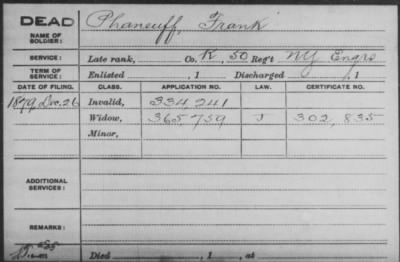 DEAD Phaneuff, Frank
NAME OF SOLDIER:
SERVICE: Late rank, Co. K, 50 Reg't NY Engrs
TERM OF SERVICE: Enlisted , 1 Discharged , 1
DATE OF FILING. CLASS. APPLICATION NO. LAW. CERTIFICATE NO.
1879, Dec. 26 Invalid, 334,241
Widow, 365,759 J 302,835
Minor,
ADDITIONAL SERVICES:
REMARKS:
Died , 1 , at